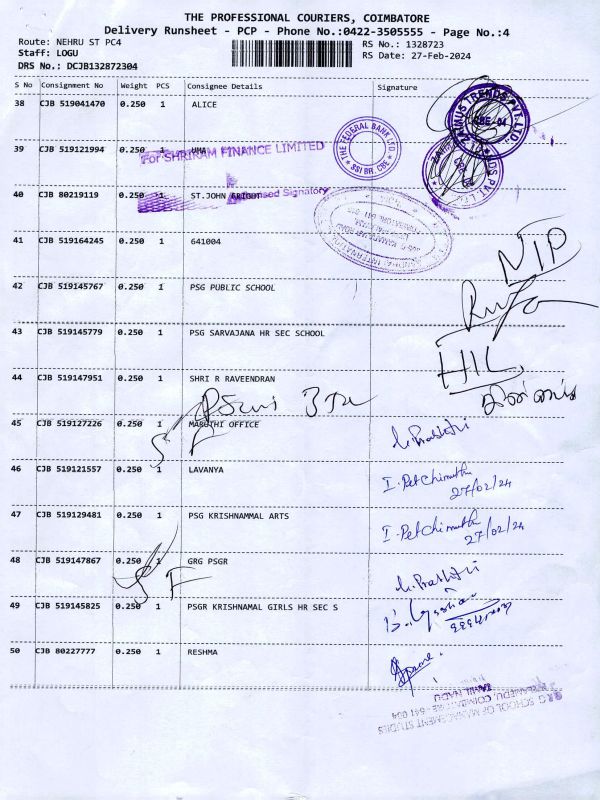 THE PROFESSIONAL COURIERS, COIMBATORE
Delivery Runsheet - PCP - Phone No.:0422-3505555 - Page No.:4
Route: NEHRU ST PC4
RS No.: 1328723
Staff: LOGU
RS Date: 27-Feb-2024
DRS No.: DCJB132872304
S No Consignment No Weight PCS Consignee Details Signature
38 CJB 519041470 0.250 1 ALICE
39 CJB 519121994 0.250 1 UMA
For SHRIRAM FINANCE LIMITED
THE FEDERAL BANK LTD
SSI BR. CBE
40 CJB 80219119 0.250 1 ST.JOHN BRIGHT
Signatory
41 CJB 519164245 0.250 1 641004
NIP
42 CJB 519145767 0.250 1 PSG PUBLIC SCHOOL
43 CJB 519145779 0.250 1 PSG SARVAJANA HR SEC SCHOOL
44 CJB 519147951 0.250 1 SHRI R RAVEENDRAN
45 CJB 519127226 0.250 1 MARUTHI OFFICE
46 CJB 519121557 0.250 1 LAVANYA
I. Petchimuthu
27/02/24
47 CJB 519129481 0.250 1 PSG KRISHNAMMAL ARTS
I. Petchimuthu
27/02/24
48 CJB 519147867 0.250 1 GRG PSGR
49 CJB 519145825 0.250 1 PSGR KRISHNAMAL GIRLS HR SEC S
50 CJB 80227777 0.250 1 RESHMA
GRG SCHOOL OF MANAGEMENT STUDIES
PEELAMEDU, COIMBATORE - 641 004
TAMIL NADU